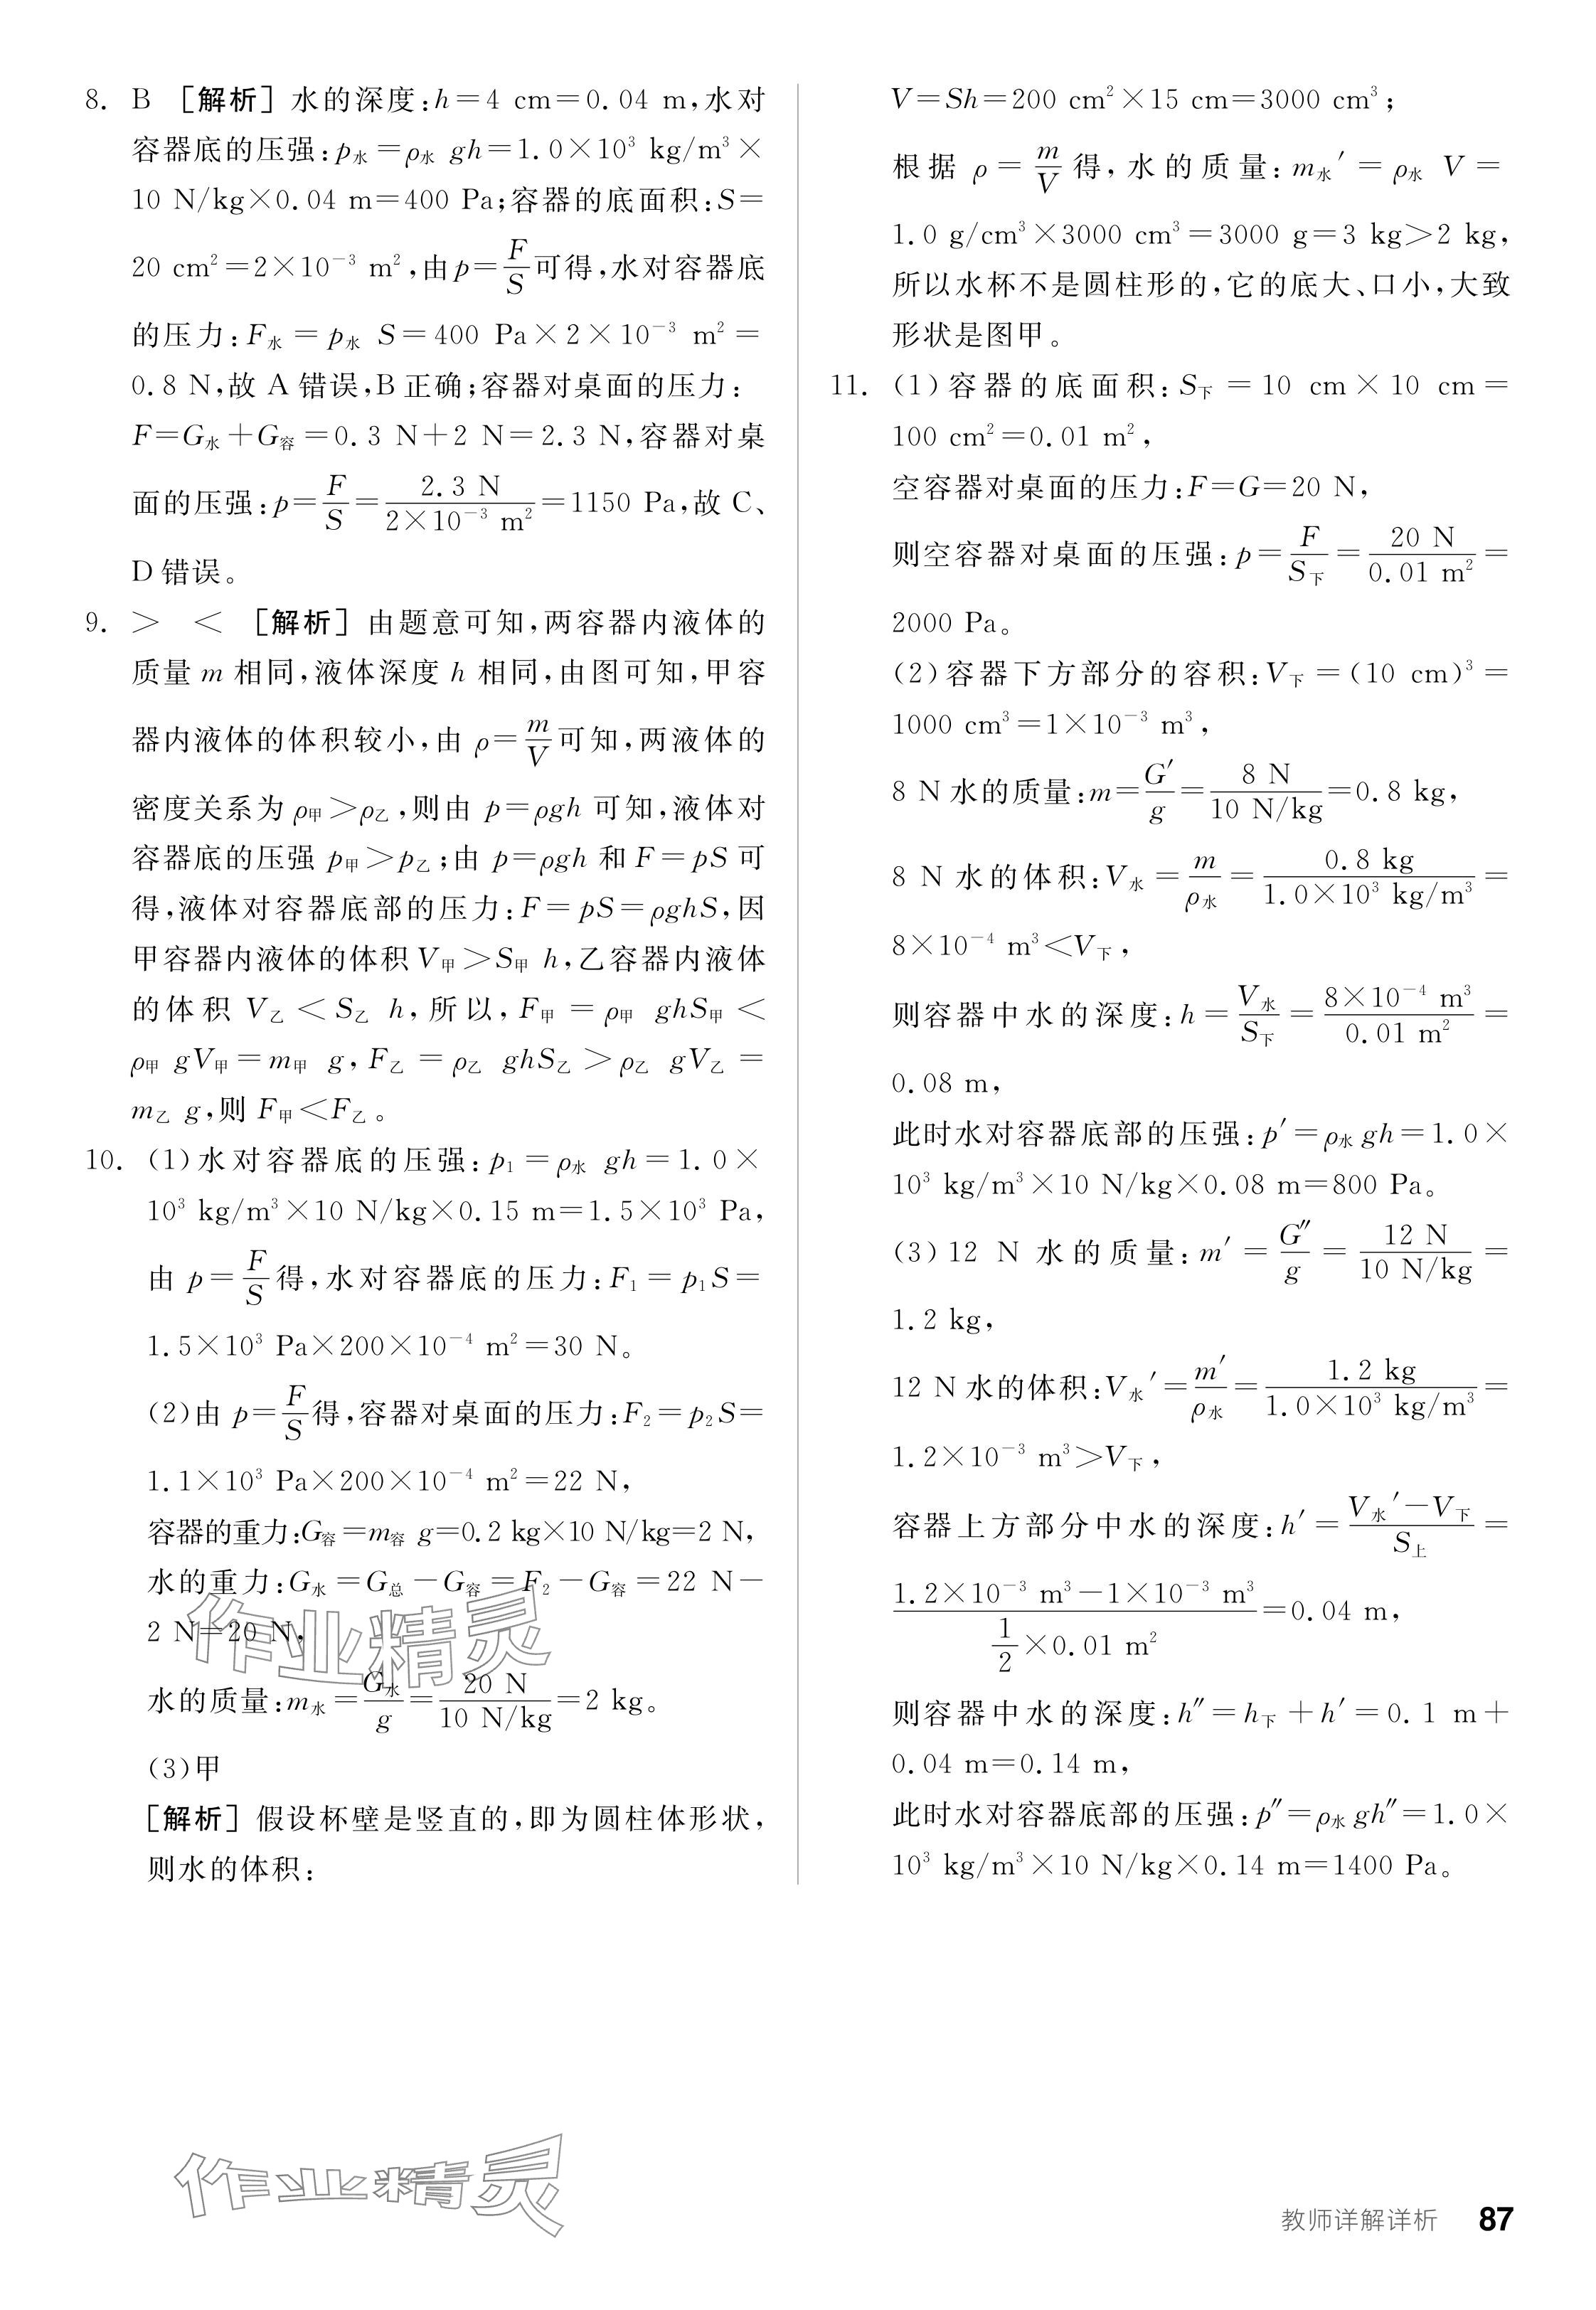 8. B ［解析］水的深度:h=4 cm=0.04 m,水对
容器底的压强:p水=ρ水 gh=1.0×10³ kg/m³×
10 N/kg×0.04 m=400 Pa;容器的底面积:S=
20 cm²=2×10⁻³ m²,由p=F/S可得,水对容器底
的压力:F水=p水 S=400 Pa×2×10⁻³ m²=
0.8 N,故 A 错误,B 正确;容器对桌面的压力:
F=G水+G容=0.3 N+2 N=2.3 N,容器对桌
面的压强:p=F/S=2.3 N/(2×10⁻³ m²)=1150 Pa,故 C、
D 错误。
9. > < ［解析］由题意可知,两容器内液体的
质量 m 相同,液体深度 h 相同,由图可知,甲容
器内液体的体积较小,由 ρ=m/V可知,两液体的
密度关系为 ρ甲>ρ乙,则由 p=ρgh 可知,液体对
容器底的压强 p甲>p乙;由 p=ρgh 和 F=pS 可
得,液体对容器底部的压力:F=pS=ρghS,因
甲容器内液体的体积 V甲>S甲 h,乙容器内液体
的体积 V乙<S乙 h,所以,F甲=ρ甲 ghS甲<
ρ甲 gV甲=m甲 g,F乙=ρ乙 ghS乙>ρ乙 gV乙=
m乙 g,则 F甲<F乙。
10. (1)水对容器底的压强:p₁=ρ水 gh=1.0×
10³ kg/m³×10 N/kg×0.15 m=1.5×10³ Pa,
由 p=F/S得,水对容器底的压力:F₁=p₁S=
1.5×10³ Pa×200×10⁻⁴ m²=30 N。
(2)由 p=F/S得,容器对桌面的压力:F₂=p₂S=
1.1×10³ Pa×200×10⁻⁴ m²=22 N,
容器的重力:G容=m容 g=0.2 kg×10 N/kg=2 N,
水的重力:G水=G总-G容=F₂-G容=22 N-
2 N=20 N,
水的质量:m水=G水/g=20 N/(10 N/kg)=2 kg。
(3)甲
［解析］假设杯壁是竖直的,即为圆柱体形状,
则水的体积:
V=Sh=200 cm²×15 cm=3000 cm³;
根据 ρ=m/V得,水的质量:m水′=ρ水 V=
1.0 g/cm³×3000 cm³=3000 g=3 kg>2 kg,
所以水杯不是圆柱形的,它的底大、口小,大致
形状是图甲。
11. (1)容器的底面积:S下=10 cm×10 cm=
100 cm²=0.01 m²,
空容器对桌面的压力:F=G=20 N,
则空容器对桌面的压强:p=F/S下=20 N/(0.01 m²)=
2000 Pa。
(2)容器下方部分的容积:V下=(10 cm)³=
1000 cm³=1×10⁻³ m³,
8 N 水的质量:m=G′/g=8 N/(10 N/kg)=0.8 kg,
8 N 水的体积:V水=m/ρ水=0.8 kg/(1.0×10³ kg/m³)=
8×10⁻⁴ m³<V下,
则容器中水的深度:h=V水/S下=8×10⁻⁴ m³/(0.01 m²)=
0.08 m,
此时水对容器底部的压强:p′=ρ水 gh=1.0×
10³ kg/m³×10 N/kg×0.08 m=800 Pa。
(3)12 N 水的质量:m′=G″/g=12 N/(10 N/kg)=
1.2 kg,
12 N 水的体积:V水′=m′/ρ水=1.2 kg/(1.0×10³ kg/m³)=
1.2×10⁻³ m³>V下,
容器上方部分中水的深度:h′=(V水′-V下)/S上=
(1.2×10⁻³ m³-1×10⁻³ m³)/(1/2×0.01 m²)=0.04 m,
则容器中水的深度:h″=h下+h′=0.1 m+
0.04 m=0.14 m,
此时水对容器底部的压强:p″=ρ水 gh″=1.0×
10³ kg/m³×10 N/kg×0.14 m=1400 Pa。
作业精灵
作业精灵
教师详解详析 87